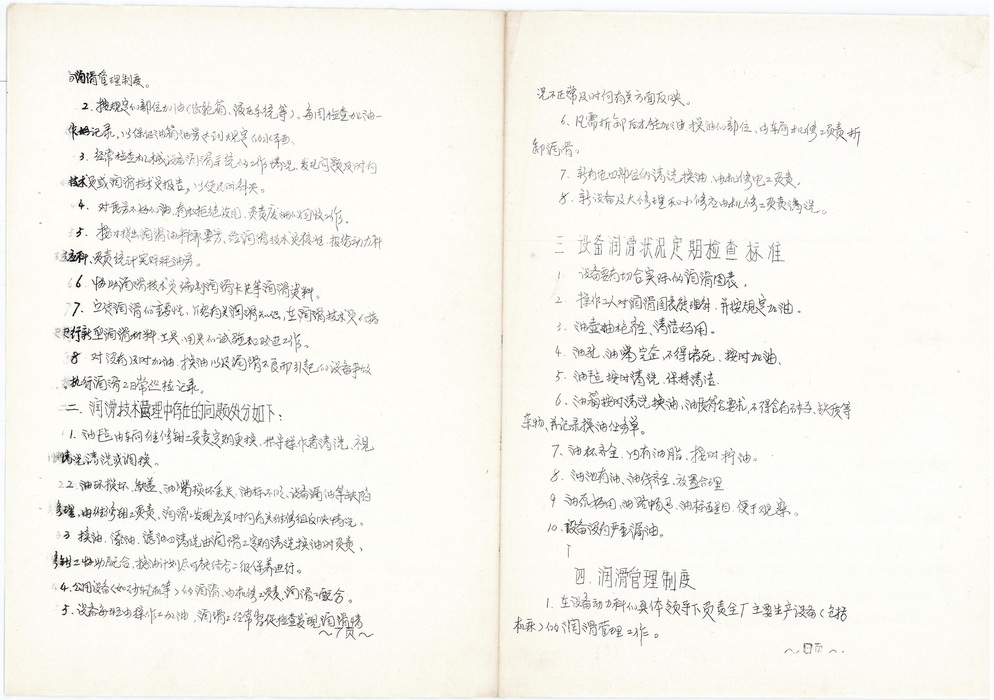 润滑管理制度。
2. 按规定的部位加油(齿轮箱、液压系统等)。每周检查加油一
作好记录,以保证油箱油质达到规定的水平面。
3. 经常检查机械设备润滑系统的工作情况,发现问题及时向
技术员或润滑技术员报告,以便及时解决。
4. 对质量不好的油,有权拒绝使用,负责废油的回收工作。
5. 按时提出润滑油料需要,经润滑技术员报送动力科
,负责统计实际耗油量。
6. 协助润滑技术员编制润滑卡片等润滑资料。
7. 宣传润滑的重要性,介绍有关润滑知识,在润滑技术员
进行新型润滑材料、工具、用具的试验和改进工作。
8 对没有及时加油、换油以及润滑不良而引起的设备事故
执行润滑工日常巡检记录。
二、润滑技术管理中存在的问题处分如下:
1. 油毡由车间维修钳工负责定期更换,指导操作者清洗,视
情况清洗或调换。
2. 油环损坏、缺盖、油嘴损坏丢失、油标不明、设备漏油等缺陷
修理,由维修钳工负责、润滑工发现应及时向有关维修组反映情况。
3 换油、添油、滤油的清洗由润滑工定期清洗换油时负责,
钳工协助配合,换油计划尽可能结合二级保养进行。
4. 公用设备(如)的润滑,由机修工负责,润滑工配合。
5. 设备每班由操作工加油,润滑工经常督促检查发现润滑情
~7页~
况不正常及时向有关方面反映。
6. 凡需拆卸后才能加油、换油的部位,由车间机修工负责拆
卸润滑。
7. 所有电的部位的清洗换油,由机修电工负责。
8. 新设备及大修理和小修应由机修工负责清洗。
三 设备润滑状况定期检查标准
1. 设备要有切合实际的润滑图表,
2. 操作工人对润滑图表能理解,并按规定加油。
3. 油壶油枪齐全、清洁好用。
4. 油孔、油嘴完全,不得堵死、按时加油、
5. 油毡按时清洗、保持清洁.
6. 油箱按时清洗换油、油质符合要求,不得含有水分、铁质等
杂物,并记录换油任务单。
7. 油杯齐全、内有油脂、按时拧油。
8. 油池有油、油线齐全、放置合理
9 油泵好用、油路畅通、油标醒目、便于观察。
10. 设备没有严重漏油。
四. 润滑管理制度
1. 在设备动力科的具体领导下负责全厂主要生产设备(包括
机床)的润滑管理工作。
~8页~.